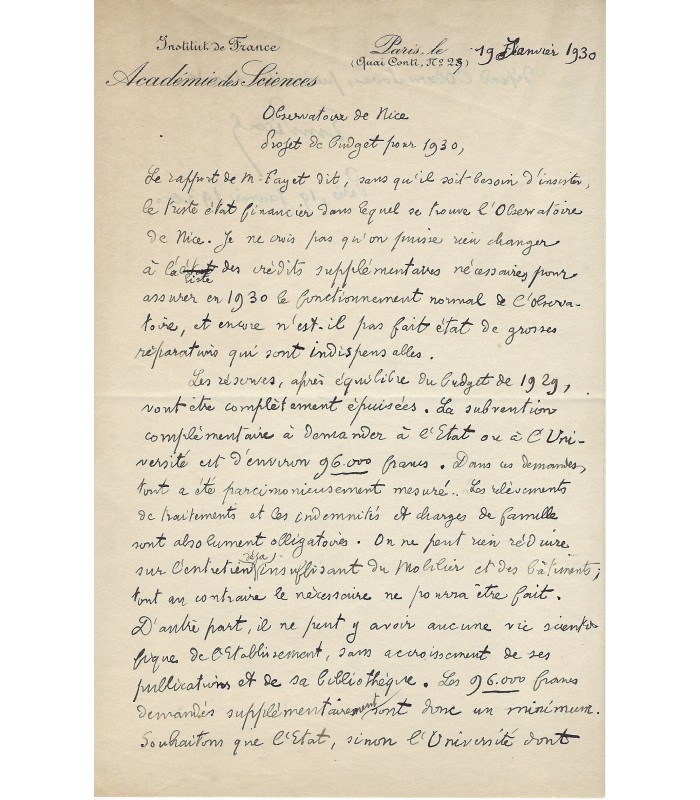 Institut de France
Académie des Sciences
Paris, le 19 Janvier 1930
(Quai Conti, N° 23)
Observatoire de Nice
Projet de budget pour 1930,
Le rapport de M. Fayet dit, sans qu'il soit besoin d'insister,
le triste état financier dans lequel se trouve l'Observatoire
de Nice. Je ne crois pas qu'on puisse rien changer
à la liste des crédits supplémentaires nécessaires pour
assurer en 1930 le fonctionnement normal de l'Observa-
toire, et encore n'est-il pas fait état de grosses
réparations qui sont indispensables.
Les réserves, après équilibre du budget de 1929,
vont être complètement épuisées. La subvention
complémentaire à demander à l'Etat ou à l'Uni-
versité est d'environ 96.000 francs. Dans ces demandes,
tout a été parcimonieusement mesuré.. Les relèvements
de traitements et les indemnités et charges de famille
sont absolument obligatoires. On ne peut rien réduire
sur l'entretien déjà insuffisant du Mobilier et des bâtiments,
tout au contraire le nécessaire ne pourra être fait.
D'autre part, il ne peut y avoir aucune vie scienti-
fique de l'Etablissement, sans accroissement de ses
publications et de sa bibliothèque. Les 96.000 francs
demandés supplémentairement sont donc un minimum.
Souhaitons que l'Etat, sinon l'Université dont